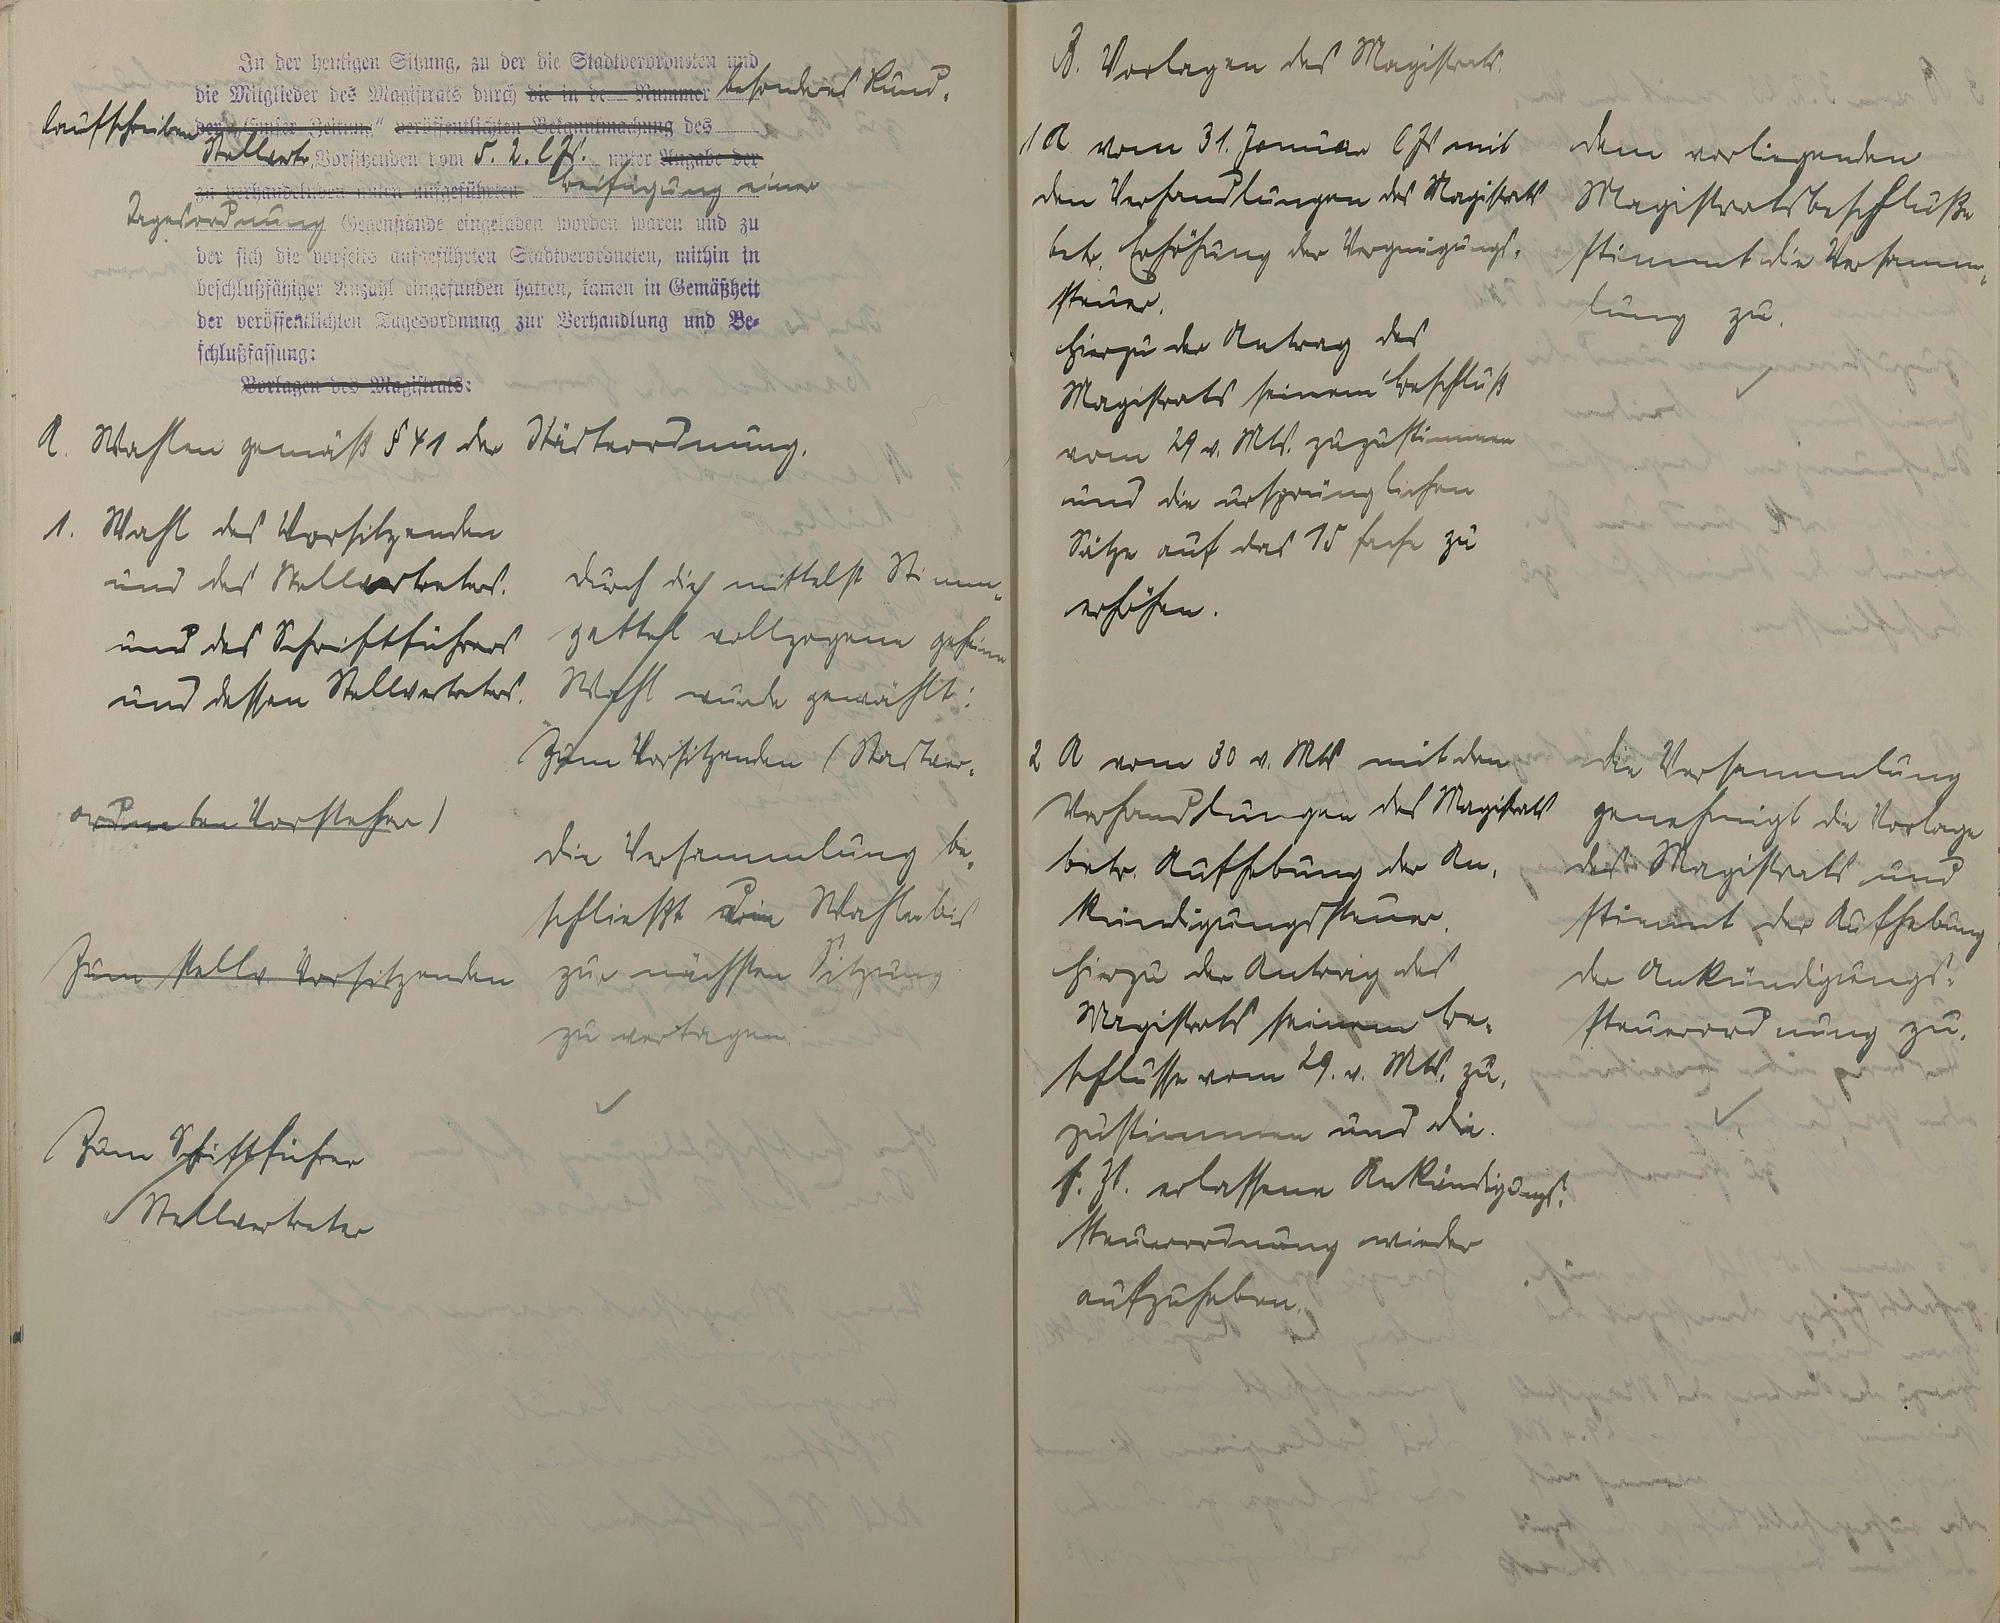 In der heutigen Sitzung, zu der die Stadtverordneten und
die Mitglieder des Magistrats durch die in de Nummer besonderes Rund-
laufschreiben der „Emser Zeitung" veröffentlichten Bekanntmachung des
Stellvertr. Vorsitzenden vom 5. 2. l Js. unter Angabe der
zu verhandelnden unten aufgeführten Beifügung einer
Tagesordnung Gegenstände eingeladen worden waren und zu
der sich die vorseits aufgeführten Stadtverordneten, mithin in
beschlußfähiger Anzahl eingefunden hatten, kamen in Gemäßheit
der veröffentlichten Tagesordnung zur Verhandlung und Be-
schlußfassung:
Vorlagen des Magistrats:
A. Wahlen gemäß § 41 der Städteordnung.
1. Wahl des Vorsitzenden
und des Stellvertreters.
und des Schriftführers
und dessen Stellvertreters.
Durch die mittelst Stimm-
zettel vollzogene geheime
Wahl wurde gewählt:
Zum Vorsitzenden (Stadtver-
ordneten Vorsteher)
Die Versammlung be-
schließt die Wahlen bis
zur nächsten Sitzung
zu vertagen.
Zum stellv Vorsitzenden
Zum Schriftführer
" Stellvertreter
B. Vorlagen des Magistrats.
1 A vom 31. Januar l Js mit
den Verhandlungen des Magistrats
betr. Erhöhung der Vergnügungs-
steuer.
Hierzu der Antrag des
Magistrats seinem Beschluß
vom 29 v. Mts. zuzustimmen
und die ursprünglichen
Sätze auf das 15 fache zu
erhöhen.
Dem vorliegenden
Magistratsbeschluße
stimmt die Versamm-
lung zu.
2 A vom 30 v. Mts mit den
Verhandlungen des Magistrats
betr. Aufhebung der An-
kündigungssteuer.
Hierzu der Antrag des
Magistrats seinem Be-
schlusse vom 29. v. Mts. zu-
zustimmen und die
s. Zt. erlassene Ankündigungs-
steuerordnung wieder
aufzuheben.
Die Versammlung
genehmigt die Vorlage
des Magistrats und
stimmt der Aufhebung
der Ankündigungs-
steuerordnung zu.